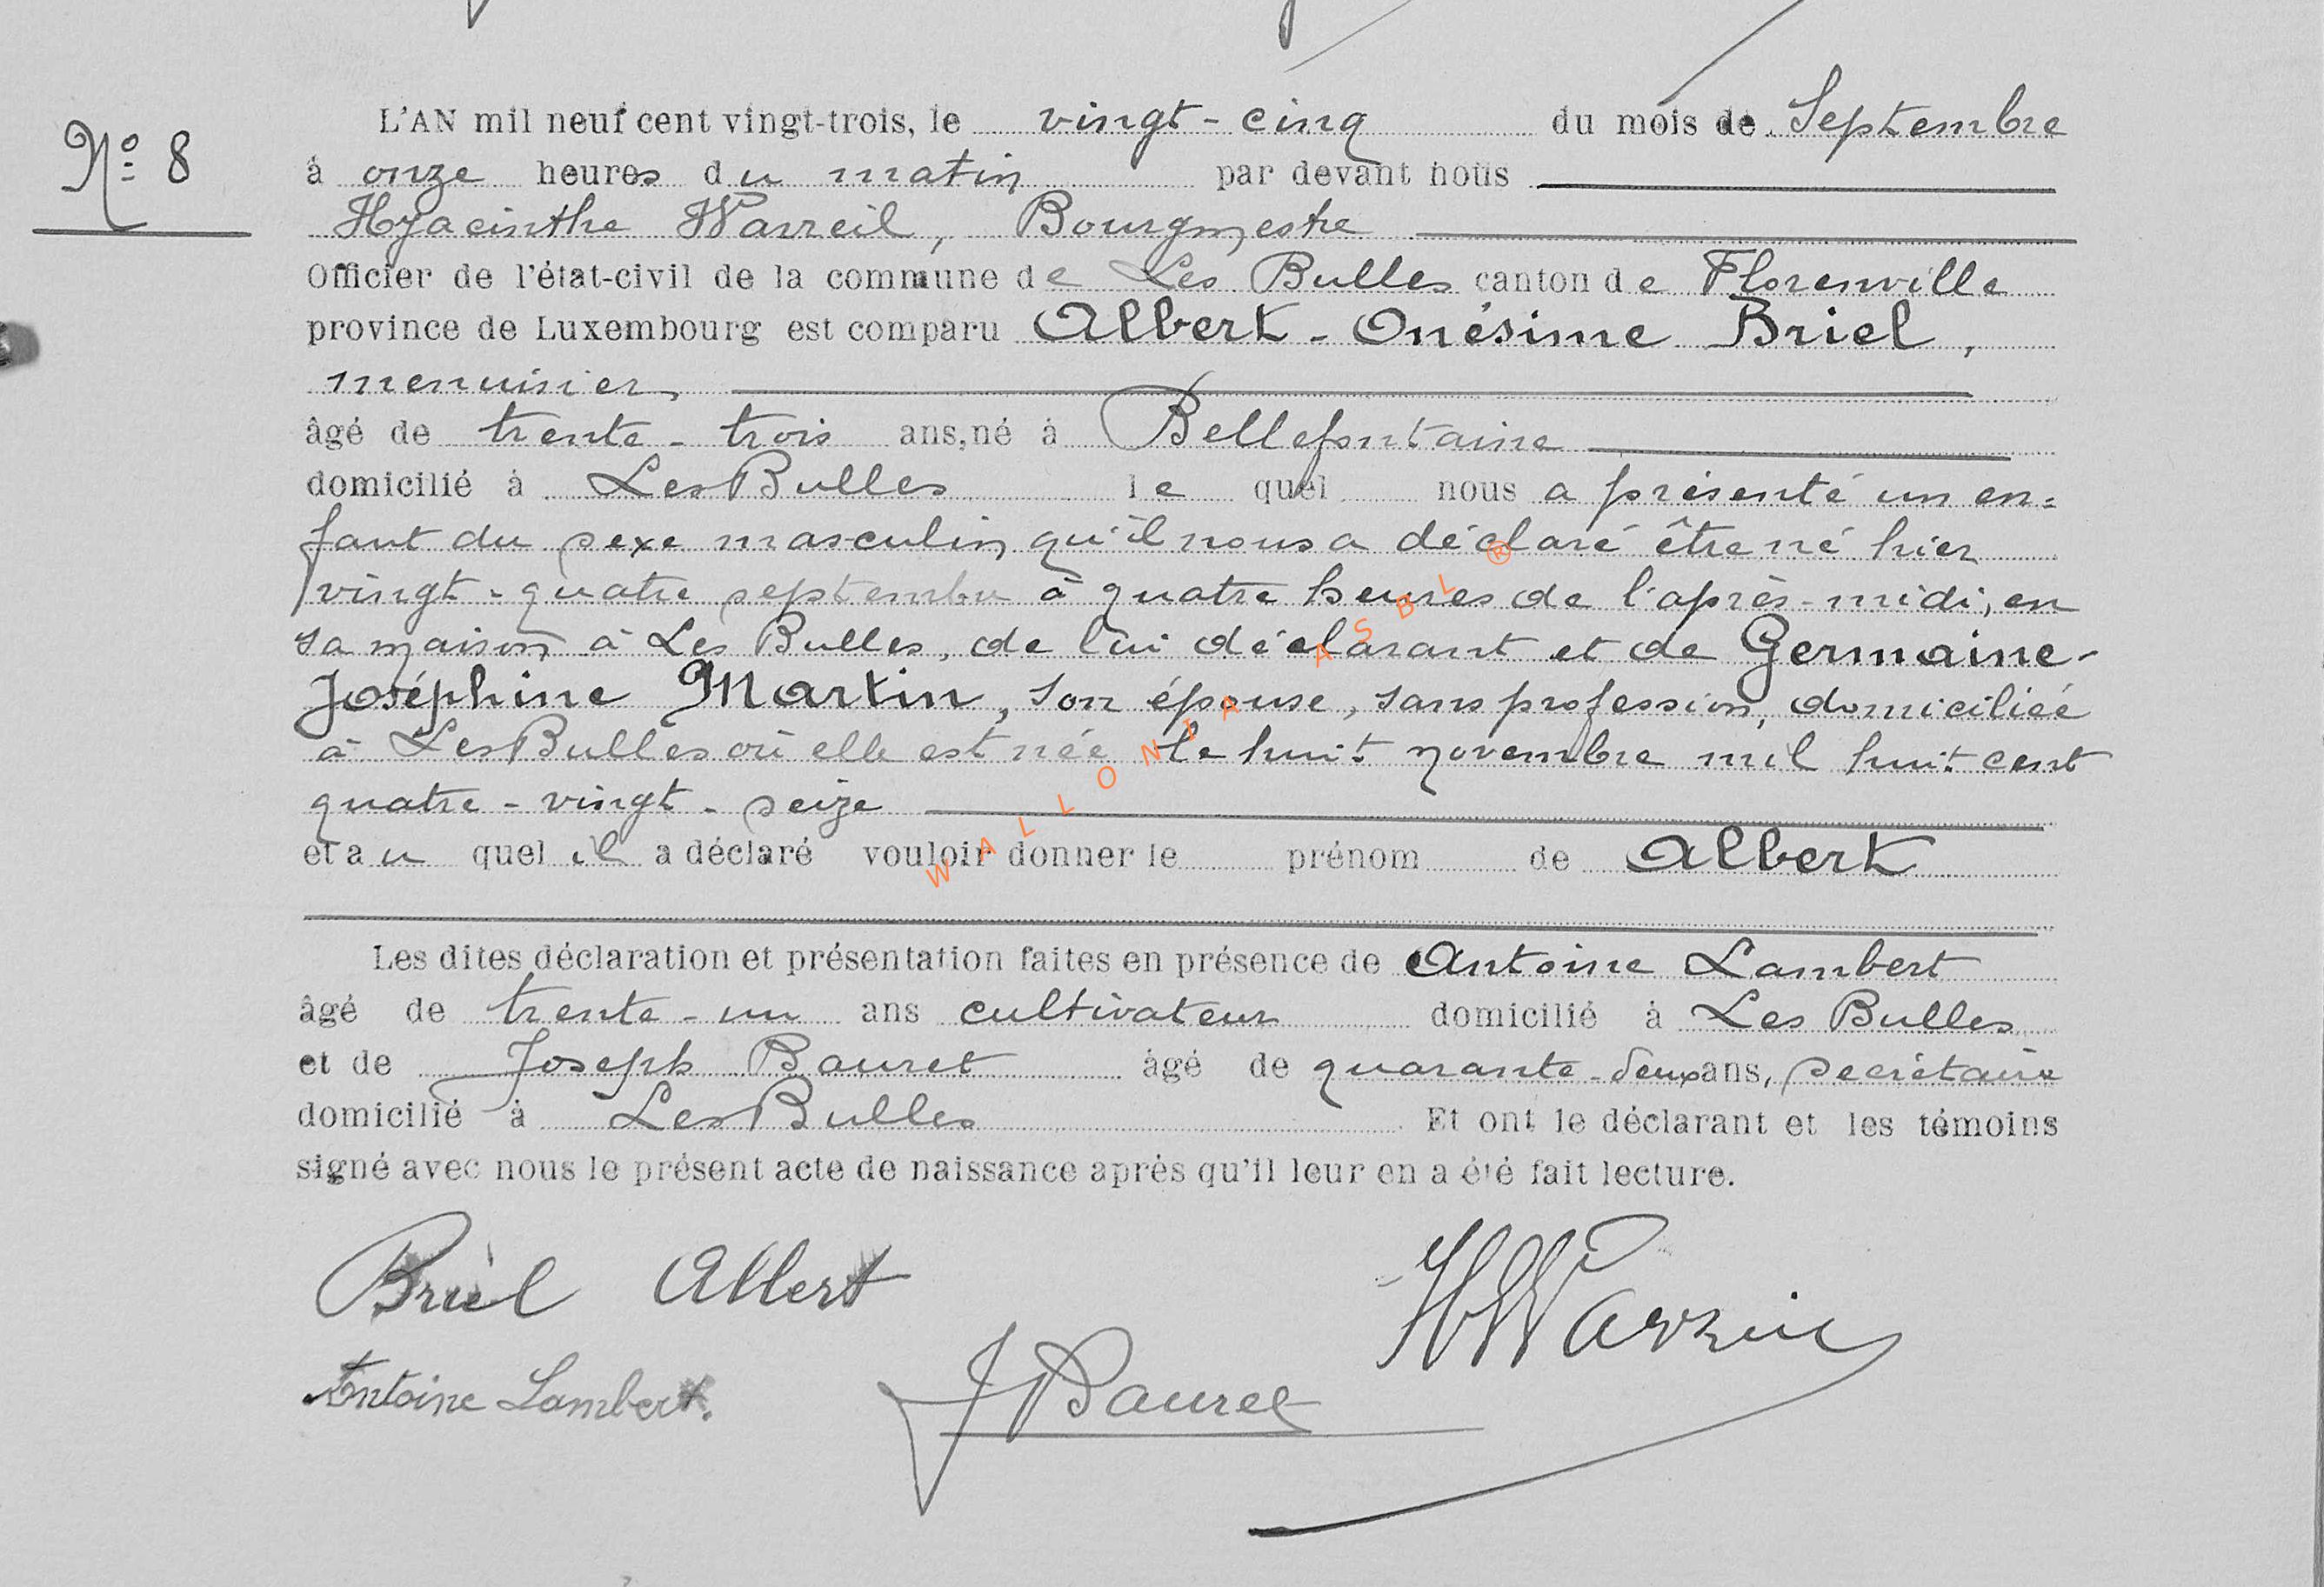 L'AN mil neuf cent vingt-trois, le vingt-cinq du mois de Septembre
N° 8
à onze heures du matin par devant nous
Hyacinthe Warzeil, Bourgmestre
Officier de l'état-civil de la commune de Les Bulles canton de Florenville
province de Luxembourg est comparu Albert-Onésime Briel,
menuisier,
âgé de trente-trois ans, né à Bellefontaine
domicilié à Les Bulles le quel nous a présenté un en=
fant du sexe masculin qu'il nous a déclaré être né hier
vingt-quatre septembre à quatre heures de l'après-midi, en
sa maison à Les Bulles, de lui déclarant et de Germaine-
Joséphine Martin, son épouse, sans profession, domiciliée
à Les Bulles où elle est née le huit novembre mil huit cent
quatre-vingt-seize
et au quel il a déclaré vouloir donner le prénom de Albert
Les dites déclaration et présentation faites en présence de Antoine Lambert
âgé de trente-un ans cultivateur domicilié à Les Bulles
et de Joseph Bauret âgé de quarante-deux ans, secrétaire
domicilié à Les Bulles Et ont le déclarant et les témoins
signé avec nous le présent acte de naissance après qu'il leur en a été fait lecture.
Briel Albert
Antoine Lambert.
J Bauret
WALLONIA ASBL ®